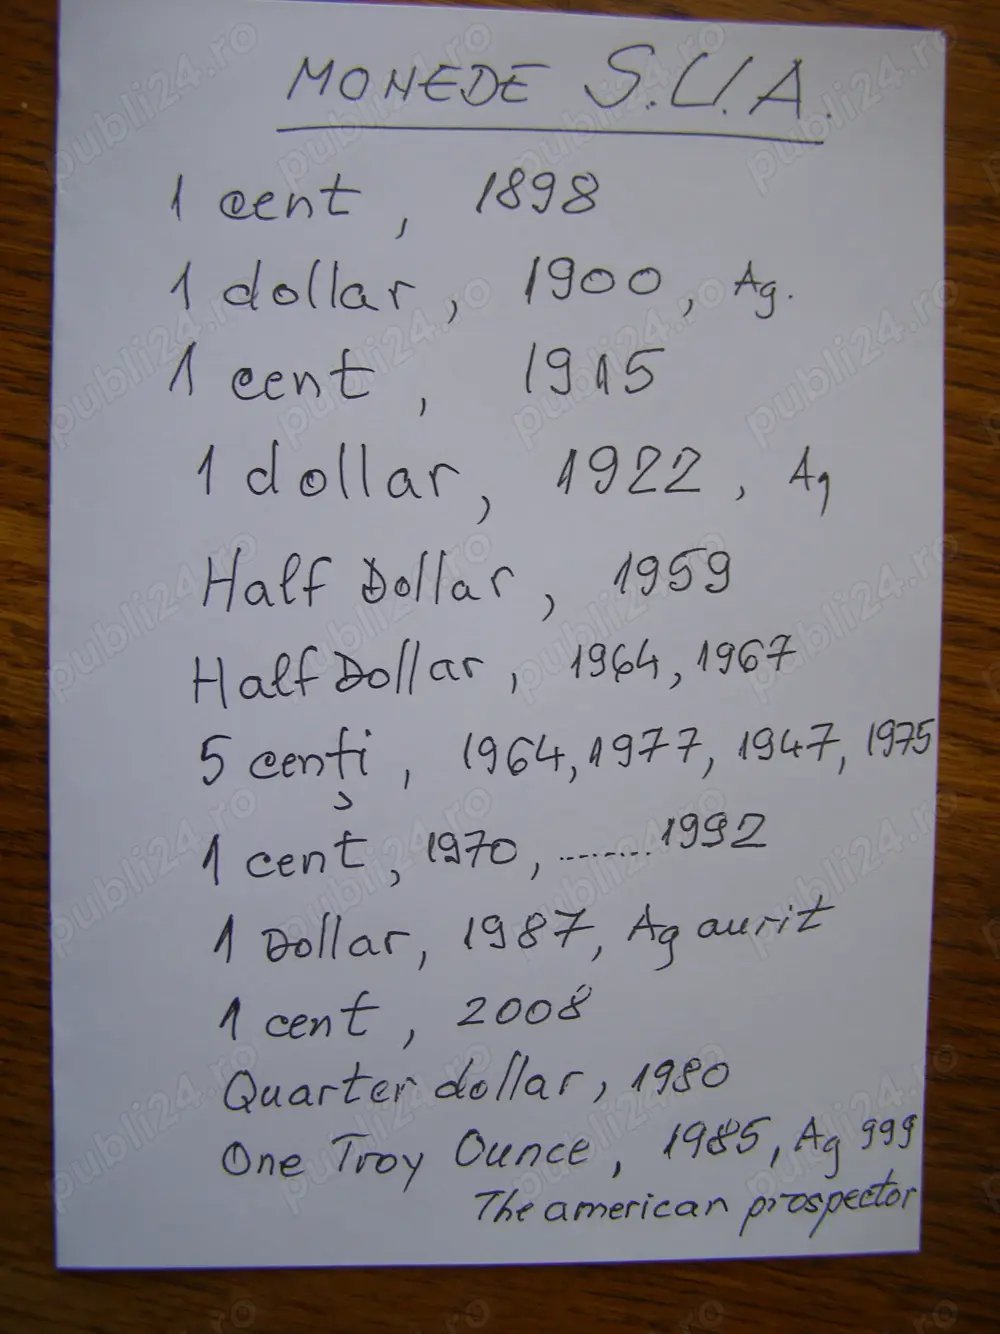 MONEDE S.U.A.
1 cent, 1898
1 dollar, 1900, Ag.
1 cent, 1915
1 dollar, 1922, Ag
Half Dollar, 1959
Half Dollar, 1964, 1967
5 cenți, 1964, 1977, 1947, 1975
1 cent, 1970, ......... 1992
1 Dollar, 1987, Ag aurit
1 cent, 2008
Quarter dollar, 1980
One Troy Ounce, 1985, Ag 999
The american prospector
publi24.ro